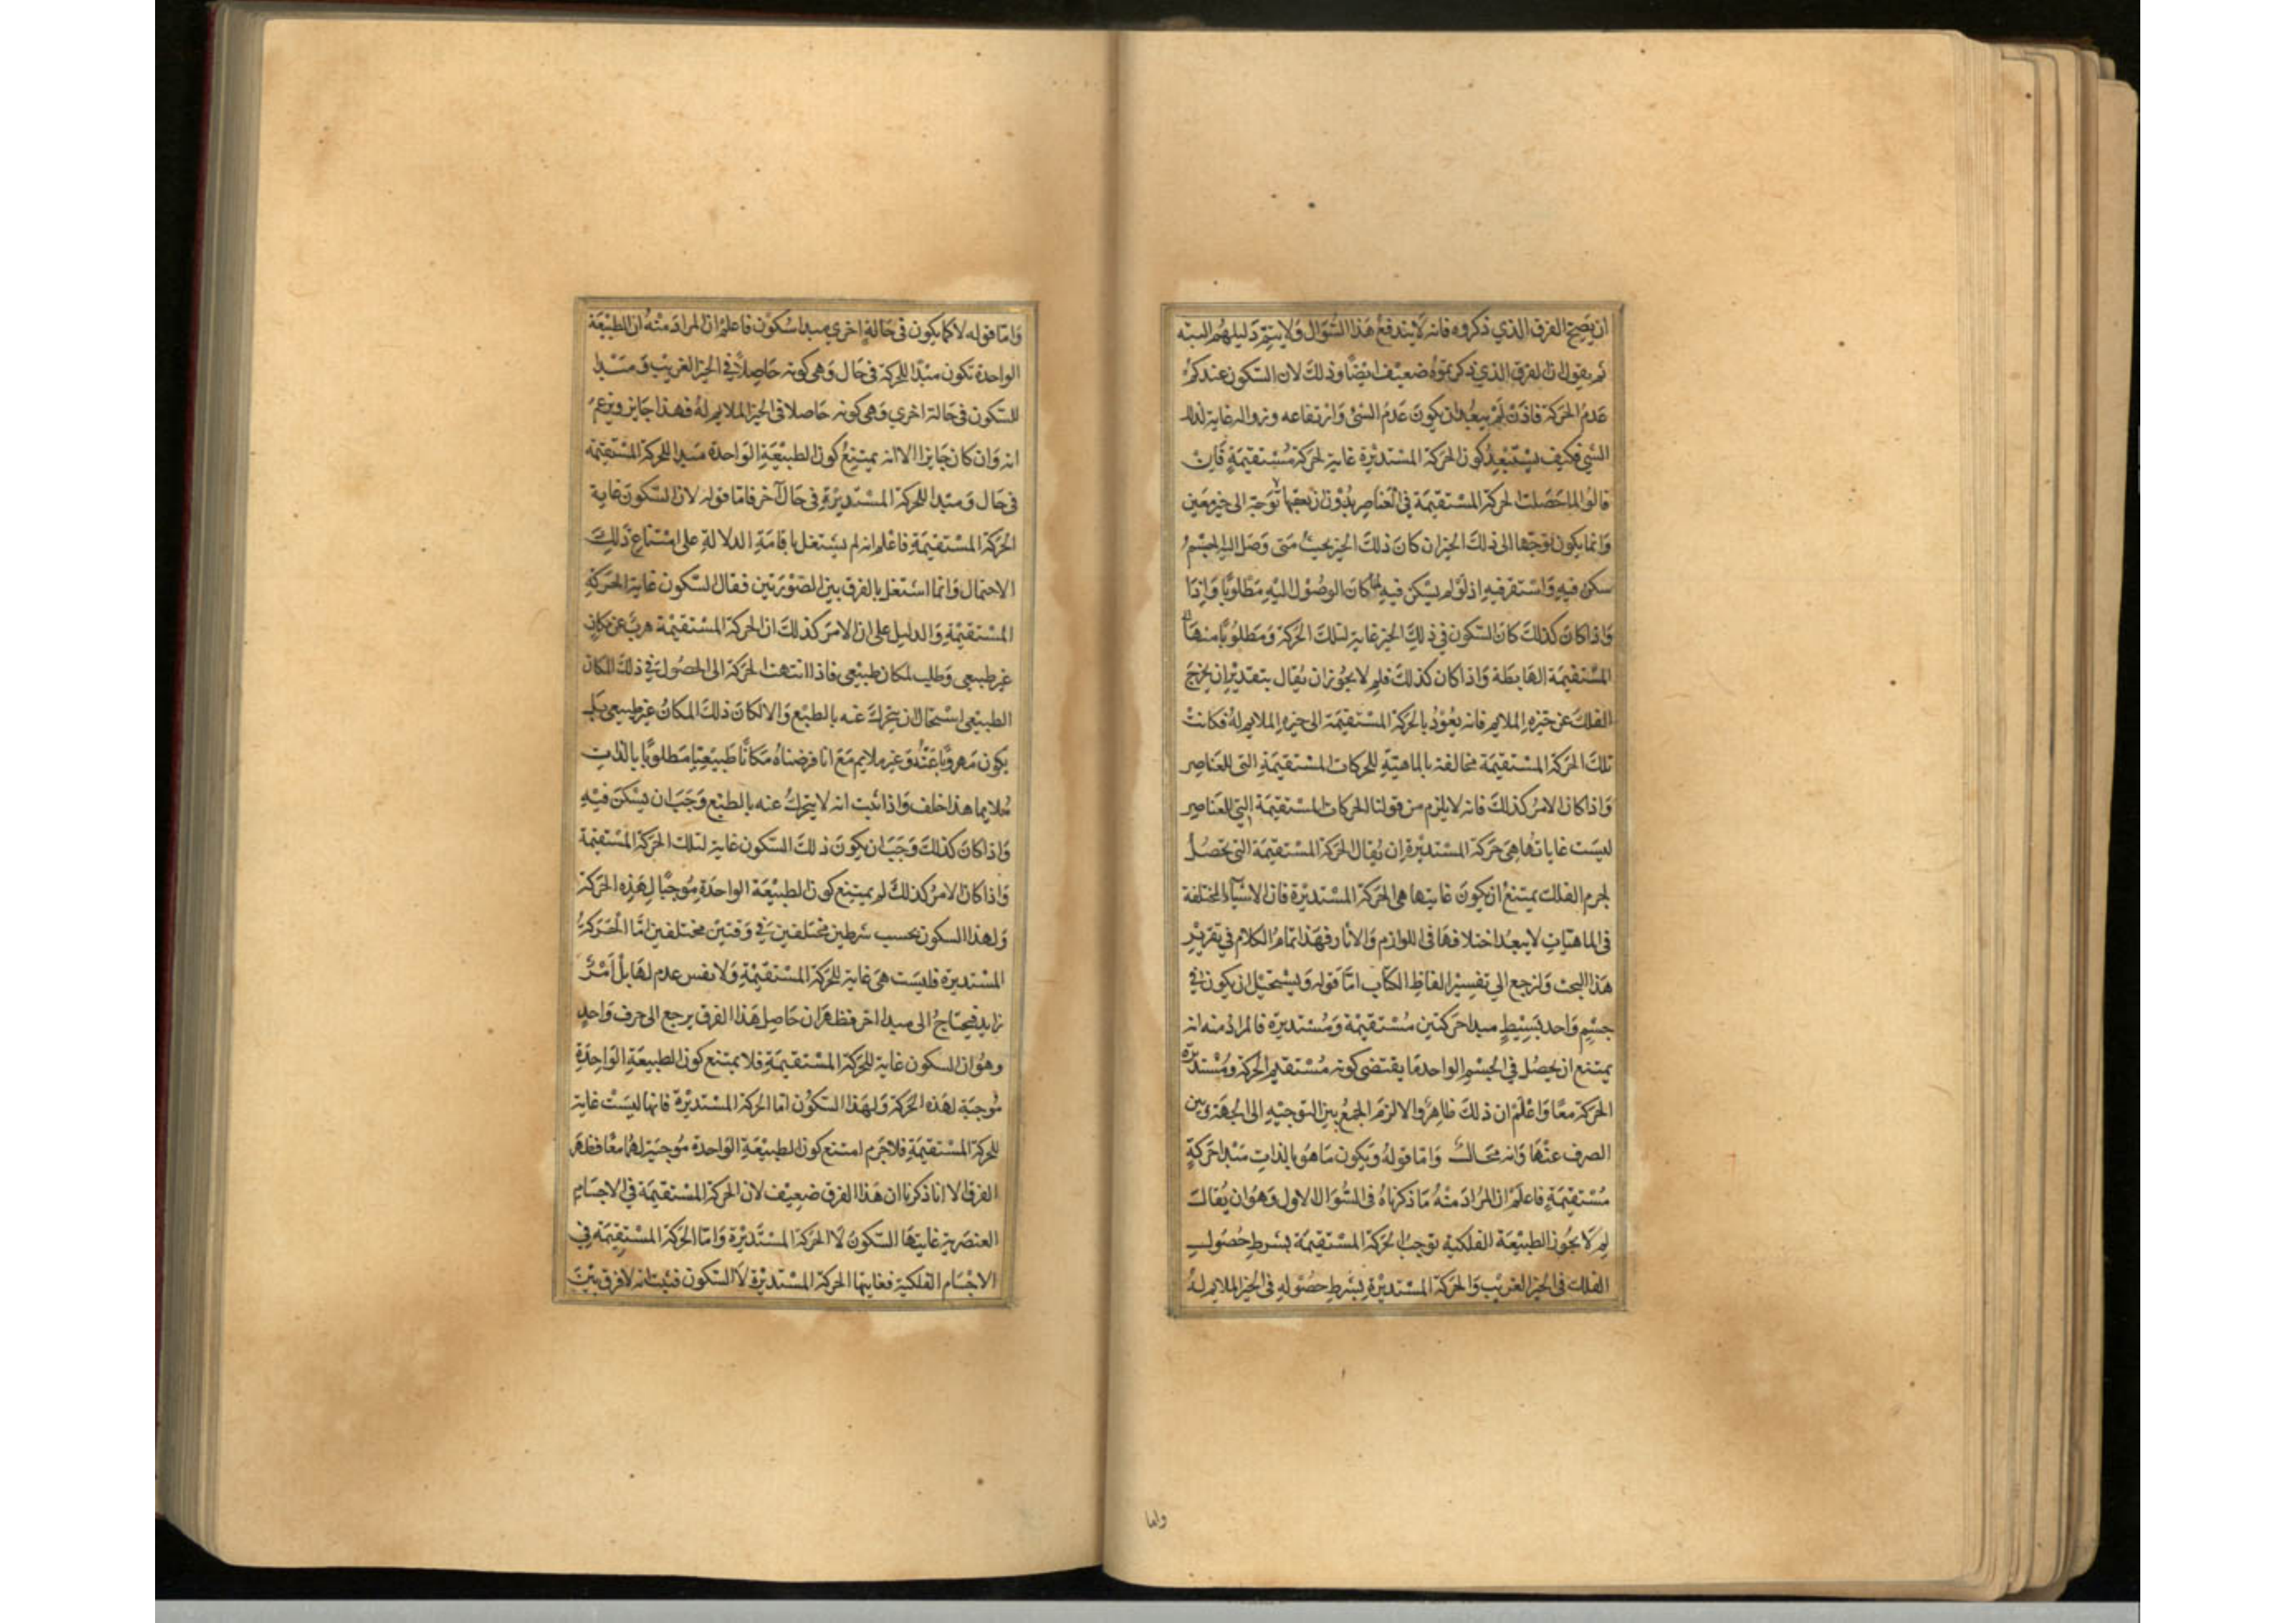 ان يصح الفرق الذي ذكروه فانه لا يندفع هذا السؤال ولا يتم دليلهم البته
ثم يقول ان الفرق الذي ذكرتموه ضعيف ايضا وذلك لان السكون عندكم
عدم الحركة فاذن لم يبعد ان يكون عدم الشئ وارتفاعه وزواله غاية لذلك
الشئ فكيف يستبعد كون الحركة المستديرة غاية لحركة مستقيمة فان
قالوا لما حصلت الحركة المستقيمة في العناصر بدون ان تعينها توجه الى حيز معين
وانما يكون توجهها الى ذلك الحيز ان كان ذلك الحيز بحيث متى وصل اليه الجسم
سكن فيه واستقر فيه اذ لو لم يسكن فيه لما كان الوصول اليه مطلوبا واذا
واذا كان كذلك كان السكون في ذلك الحيز غاية لتلك الحركة ومطلوبا منها
المستقيمة الهابطة واذا كان كذلك فلم لا يجوز ان يقال بتقدير ان يخرج
الفلك عن حيزه الملايم فانه يعود بالحركة المستقيمة الى حيزه الملايم له فكانت
تلك الحركة المستقيمة مخالفة بالماهية للحركات المستقيمة التي للعناصر
واذا كان الامر كذلك فانه لا يلزم من قولنا الحركات المستقيمة التي للعناصر
ليست غاياتها هي حركة المستديرة ان يقال الحركة المستقيمة التي تحصل
لجرم الفلك يمتنع ان يكون غايتها هي الحركة المستديرة فان الاشياء المختلفة
في الماهيات لا يبعد اختلافها في اللوازم والاثار فهذا تمام الكلام في تقرير
هذا البحث ولنرجع الي تفسير الفاظ الكتاب اما قوله ويستحيل ان يكون في
جسم واحد بسيط مبدا حركتين مستقيمة ومستديرة فالمراد منه انه
يمتنع ان يحصل في الجسم الواحد ما يقتضى كونه مستقيم الحركة ومستديرة
الحركة معا واعلم ان ذلك ظاهر والا لزم الجمع بين التوجيه الى الجهة وبين
الصرف عنها وانه محال واما قوله ويكون ما هو بالذات مبدا حركة
مستقيمة فاعلم ان المراد منه ما ذكرناه في السؤال الاول وهو ان يقال
لم لا يجوز الطبيعة الفلكية توجب الحركة المستقيمة بشرط حصول
الفلك في الحيز الغريب والحركة المستديرة بشرط حصوله في الحيز الملايم له
واما
واما قوله لا كما يكون في حالة اخري مبدا سكون فاعلم ان المراد منه ان الطبيعة
الواحدة تكون مبدا للحركة في حال وهي كونه حاصلا في الحيز الغريب ومبدا
للسكون في حالة اخري وهي كونه حاصلا في الحيز الملايم له فهذا جايز ويزعم
انه وان كان جايزا الا انه يمتنع كون الطبيعة الواحدة مبدا للحركة المستقيمة
في حال ومبدا للحركة المستديرة في حال آخر فاما قوله لان السكون غاية
الحركة المستقيمة فاعلم انه لم يشتغل باقامة الدلالة على امتناع ذلك
الاحتمال وانما اشتغل بالفرق بين الصورتين فقال السكون غاية الحركة
المستقيمة والدليل على ان الامر كذلك ان الحركة المستقيمة هرب عن مكان
غير طبيعي وطلب لمكان طبيعي فاذا انتهت الحركة الى الحصول في ذلك المكان
الطبيعي استحال ان يتحرك عنه بالطبع والا لكان ذلك المكان غير طبيعي بل
يكون مهروبا عنه وغير ملايم مع انا فرضناه مكانا طبيعيا مطلوبا بالذات
ملايما هذا خلف واذا ثبت انه لا يتحرك عنه بالطبع وجب ان يسكن فيه
واذا كان كذلك وجب ان يكون ذلك السكون غاية لتلك الحركة المستقيمة
واذا كان الامر كذلك لم يمتنع كون الطبيعة الواحدة موجبا لهذه الحركة
ولهذا السكون بحسب شرطين مختلفين في وقتين مختلفين اما الحركة
المستديرة فليست هي غاية للحركة المستقيمة ولا نفس عدم لها بل امر
زايد فيحتاج الى مبدا اخر فظهر ان حاصل هذا الفرق يرجع الى حرف واحد
وهو ان السكون غاية للحركة المستقيمة فلا يمتنع كون الطبيعة الواحدة
موجبة لهذه الحركة ولهذا السكون اما الحركة المستديرة فانها ليست غاية
للحركة المستقيمة فلا جرم امتنع كون الطبيعة الواحدة موجبة لهما معا فظهر
الفرق الا انا ذكرنا ان هذا الفرق ضعيف لان الحركة المستقيمة في الاجسام
العنصرية غايتها السكون لا الحركة المستديرة واما الحركة المستقيمة في
الاجسام الفلكية فغايتها الحركة المستديرة لا السكون فثبت انه لا فرق بين